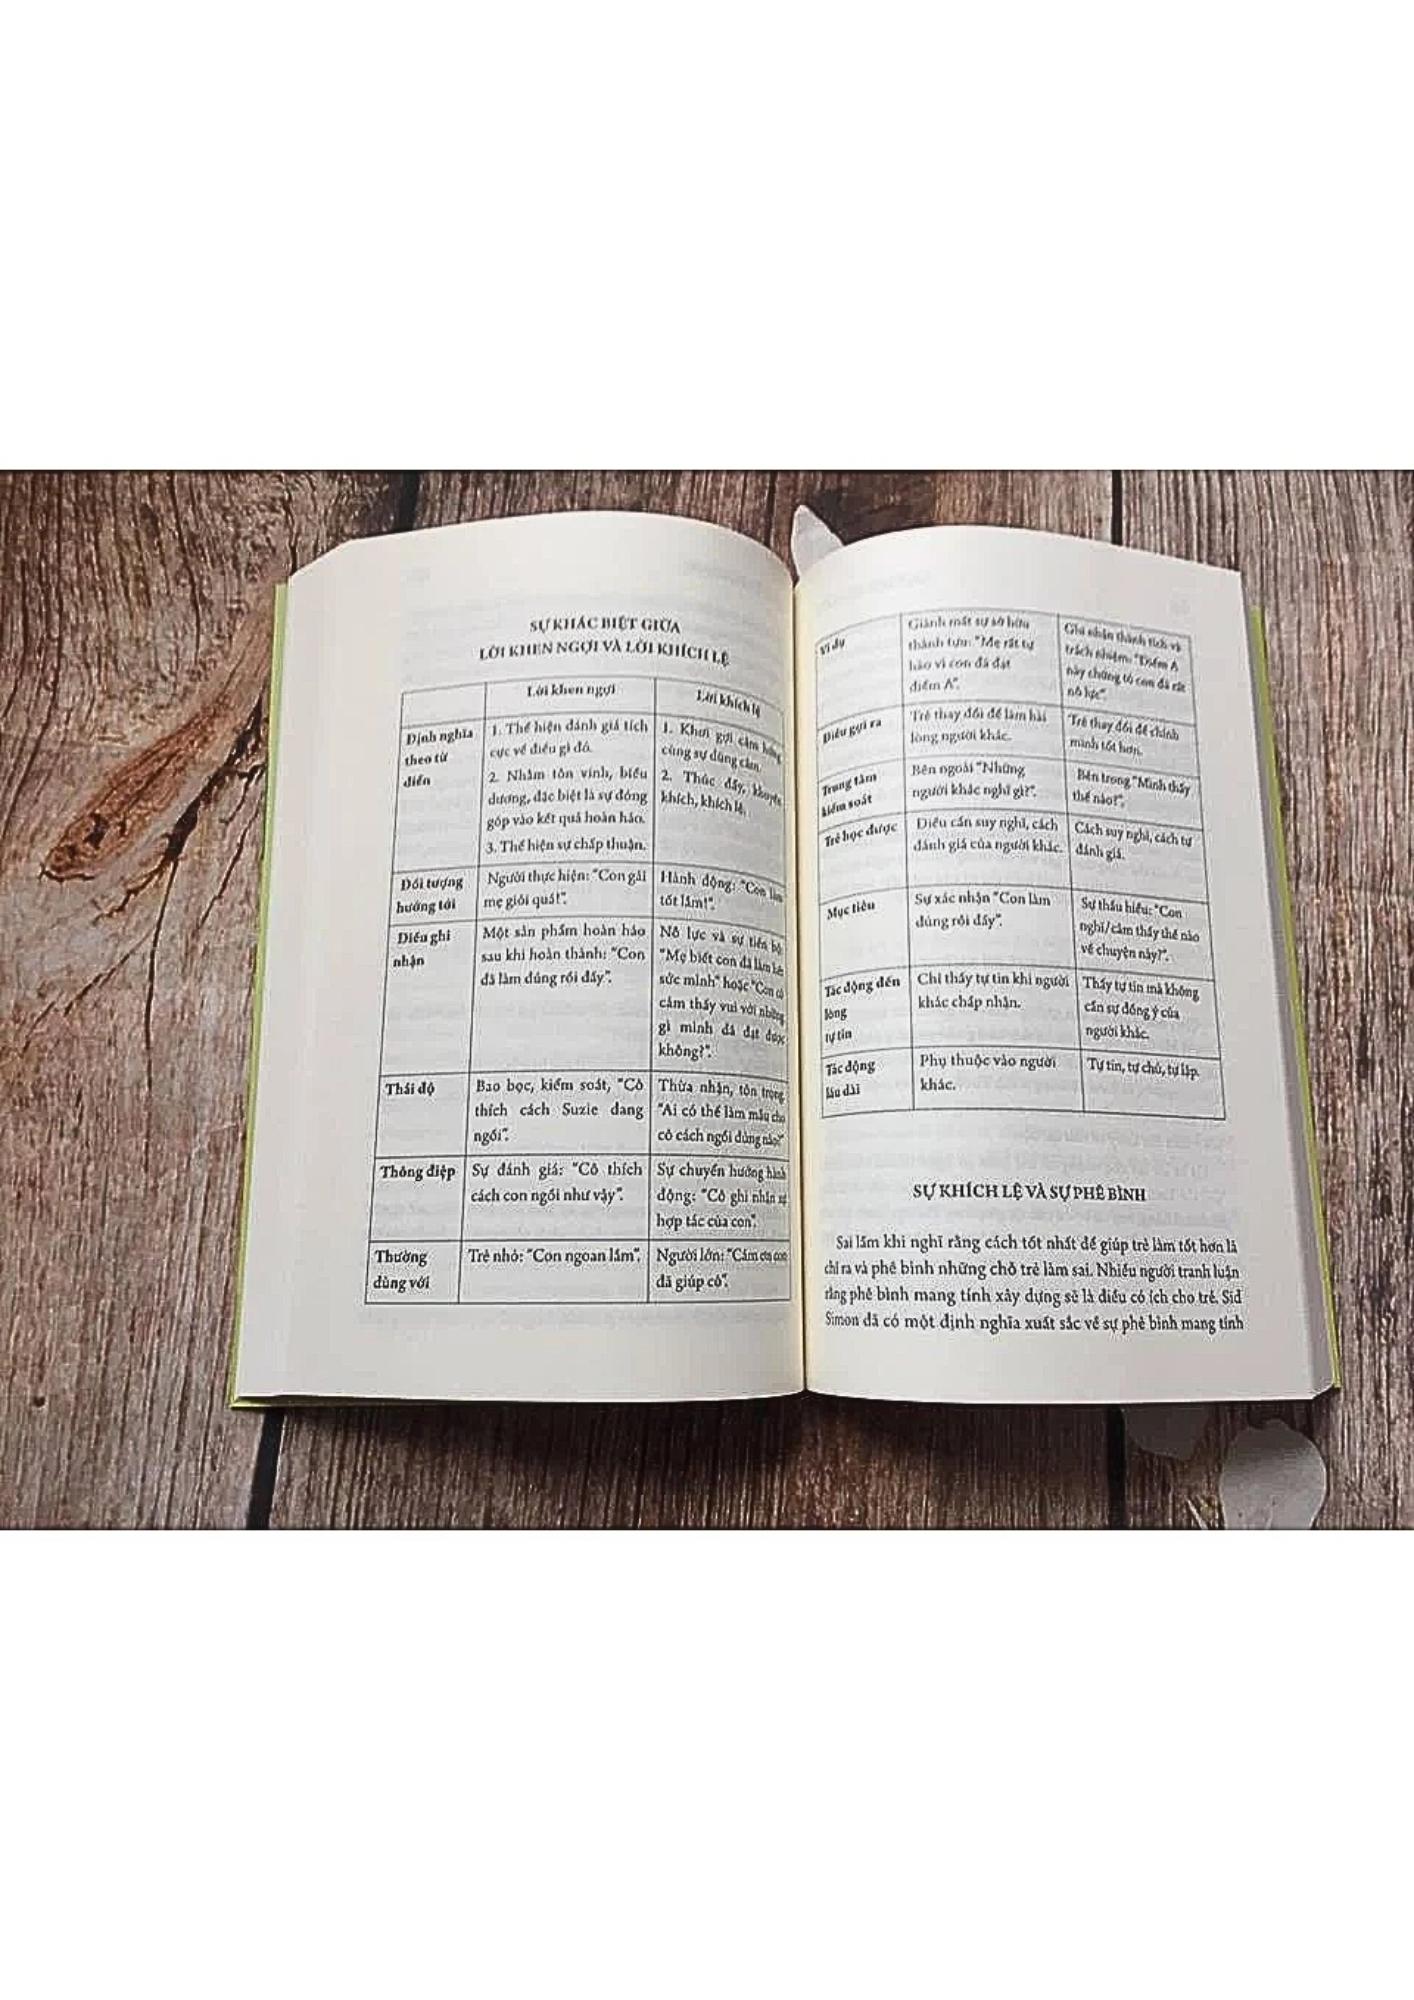 SỰ KHÁC BIỆT GIỮA
LỜI KHEN NGỢI VÀ LỜI KHÍCH LỆ
Lời khen ngợi
Lời khích lệ
Định nghĩa
theo từ
điển
1. Thể hiện đánh giá tích
cực về điều gì đó.
2. Nhằm tôn vinh, biểu
dương, đặc biệt là sự đóng
góp vào kết quả hoàn hảo.
3. Thể hiện sự chấp thuận.
1. Khơi gợi cảm hứng
cùng sự dũng cảm.
2. Thúc đẩy, khuyến
khích, khích lệ.
Đối tượng
hướng tới
Người thực hiện: "Con gái
mẹ giỏi quá!".
Hành động: "Con làm
tốt lắm!".
Điều ghi
nhận
Một sản phẩm hoàn hảo
sau khi hoàn thành: "Con
đã làm đúng rồi đấy".
Nỗ lực và sự tiến bộ:
"Mẹ biết con đã làm hết
sức mình" hoặc "Con có
cảm thấy vui với những
gì mình đã đạt được
không?".
Thái độ
Bao bọc, kiểm soát, "Cô
thích cách Suzie đang
ngồi".
Thừa nhận, tôn trọng
"Ai có thể làm mẫu cho
cô cách ngồi đúng nào?"
Thông điệp
Sự đánh giá: "Cô thích
cách con ngồi như vậy".
Sự chuyển hướng hành
động: "Cô ghi nhận sự
hợp tác của con".
Thường
dùng với
Trẻ nhỏ: "Con ngoan lắm".
Người lớn: "Cảm ơn con
đã giúp cô".
Ví dụ
Giành mất sự sở hữu
thành tựu: "Mẹ rất tự
hào vì con đã đạt
điểm A".
Ghi nhận thành tích và
trách nhiệm: "Điểm A
này chứng tỏ con đã rất
nỗ lực".
Điều gợi ra
Trẻ thay đổi để làm hài
lòng người khác.
Trẻ thay đổi để chính
mình tốt hơn.
Trung tâm
kiểm soát
Bên ngoài "Những
người khác nghĩ gì?".
Bên trong "Mình thấy
thế nào?".
Trẻ học được
Điều cần suy nghĩ, cách
đánh giá của người khác.
Cách suy nghĩ, cách tự
đánh giá.
Mục tiêu
Sự xác nhận "Con làm
đúng rồi đấy".
Sự thấu hiểu: "Con
nghĩ/cảm thấy thế nào
về chuyện này?".
Tác động đến
lòng
tự tin
Chỉ thấy tự tin khi người
khác chấp nhận.
Thấy tự tin mà không
cần sự đồng ý của
người khác.
Tác động
lâu dài
Phụ thuộc vào người
khác.
Tự tin, tự chủ, tự lập.
SỰ KHÍCH LỆ VÀ SỰ PHÊ BÌNH
Sai lầm khi nghĩ rằng cách tốt nhất để giúp trẻ làm tốt hơn là
chỉ ra và phê bình những chỗ trẻ làm sai. Nhiều người tranh luận
rằng phê bình mang tính xây dựng sẽ là điều có ích cho trẻ. Sid
Simon đã có một định nghĩa xuất sắc về sự phê bình mang tính